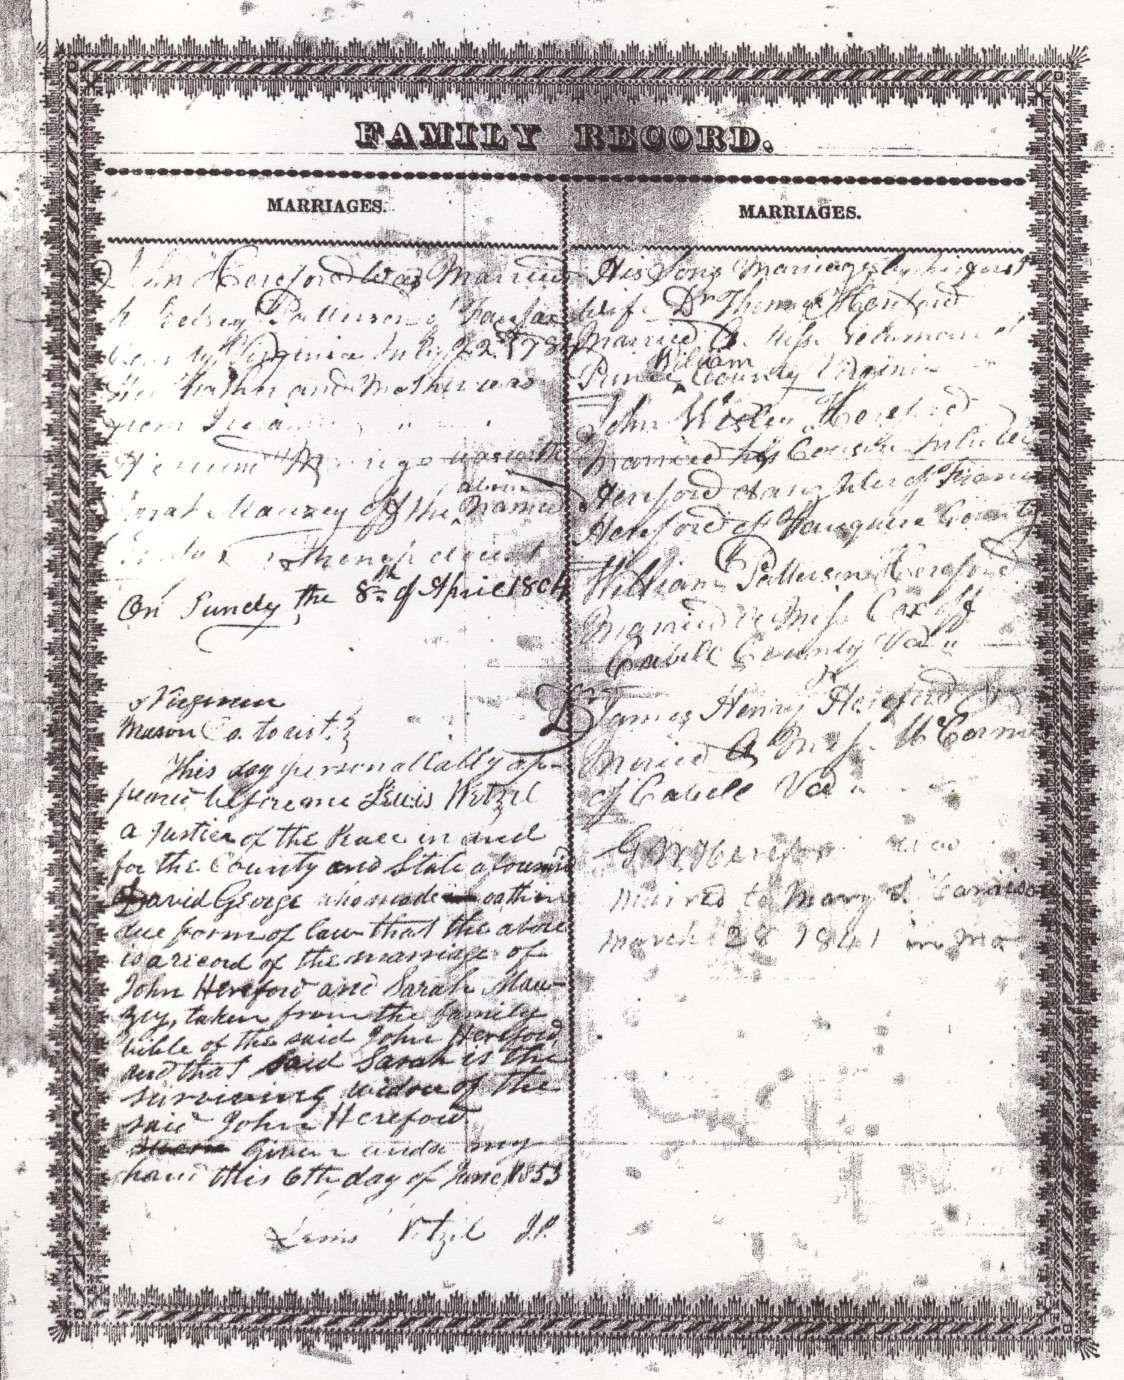 FAMILY RECORD.
MARRIAGES.
John Hereford was Married
Betsey Patterson Fairfax
County Virginia July 22 178
Her Father and Mother was
from
Marriage was with
above
Sarah Mauzey of the named
On Sundy the 8th of April 1804
Virginia
Mason Co. to wit
This day personallally ap-
peared before me Lewis Wetzel
a Justice of the Peace in and
for the County and State aforesaid
David George who made oath in
due form of law that the above
is a record of the marriage of
John Hereford and Sarah Mau-
zey, taken from the family
bible of the said John Hereford
and that said Sarah is the
surviving widow of the
said John Hereford
Given under my
hand this 6th day of June 1853
Lewis Wetzel J.P.
MARRIAGES.
His Sons Marriages by his first
Wife Dr Thomas Hereford
Married A Miss
William
Prince County Virginia
John Wesley Hereford
Married his Cousin
Hereford daughter of Francis
Hereford of Fauquire County
William Patterson Hereford
Married a Miss Cox off
Cabell County Va
Dr James Henry Hereford
Maried A Miss McCormic
of Cabell Va
G W Hereford was
Mairred to Mary S. Garrison
March 28 1841 in Mo